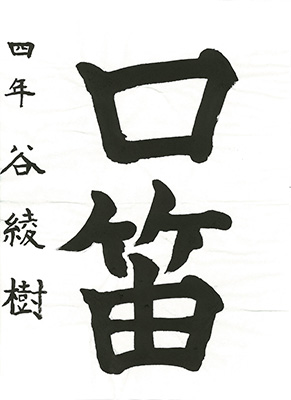 口笛
四年 谷綾樹